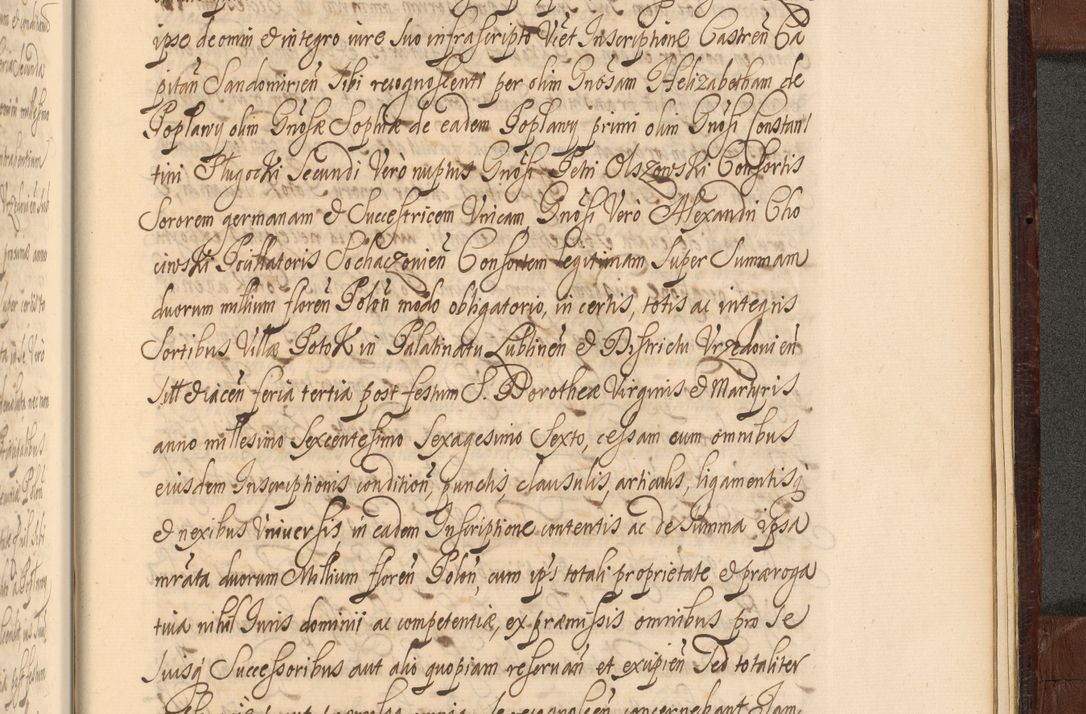 ipse de omni et integro iure Suo infrascripto Viet Inscriptione Castren Ca
pitan Sandomirien Sibi recognoscenti per olim Gnosam Helizabetham de
Poplawy olim Gnosæ Sophiæ de eadem Poplawy primi olim Gnosi Constan
tini Plugocki Secundi Vero nuptus Gnosi Petri Olszowski Consortis
Sororem germanam et Successtricem Vnicam, Gnosi Vero Alexandri Cho
ciwski Pocillatoris Sochaczovien Consortem legitimam Super Summam
duorum millium floren Polon modo obligatorio, in certis, totis ac integris
Sortibus Villæ Potok in Palatinatu Lublinen et Districtu Vrzedovien
Sitt et iacen feria tertia post festum S. Dorotheæ Virginis et Martyris
anno millesimo Sexcentesimo Sexagesimo Sexto, cessam cum omnibus
eiusdem Inscriptionis condition, punctis, clausulis, articulis, ligamentisq
et nexibus Vniuersis in eadem Inscriptione contentis ac de Summa ipsa
mrata duorum Millium floren Polon, cum ips totali proprietate et præroga
tiua nihil Iuris dominii ac competentiæ, ex præmissis omnibus pro Se
Suisq Successoribus aut alio quopiam reseruan et excipien Sed totaliter
recognoscen concernebant Iam